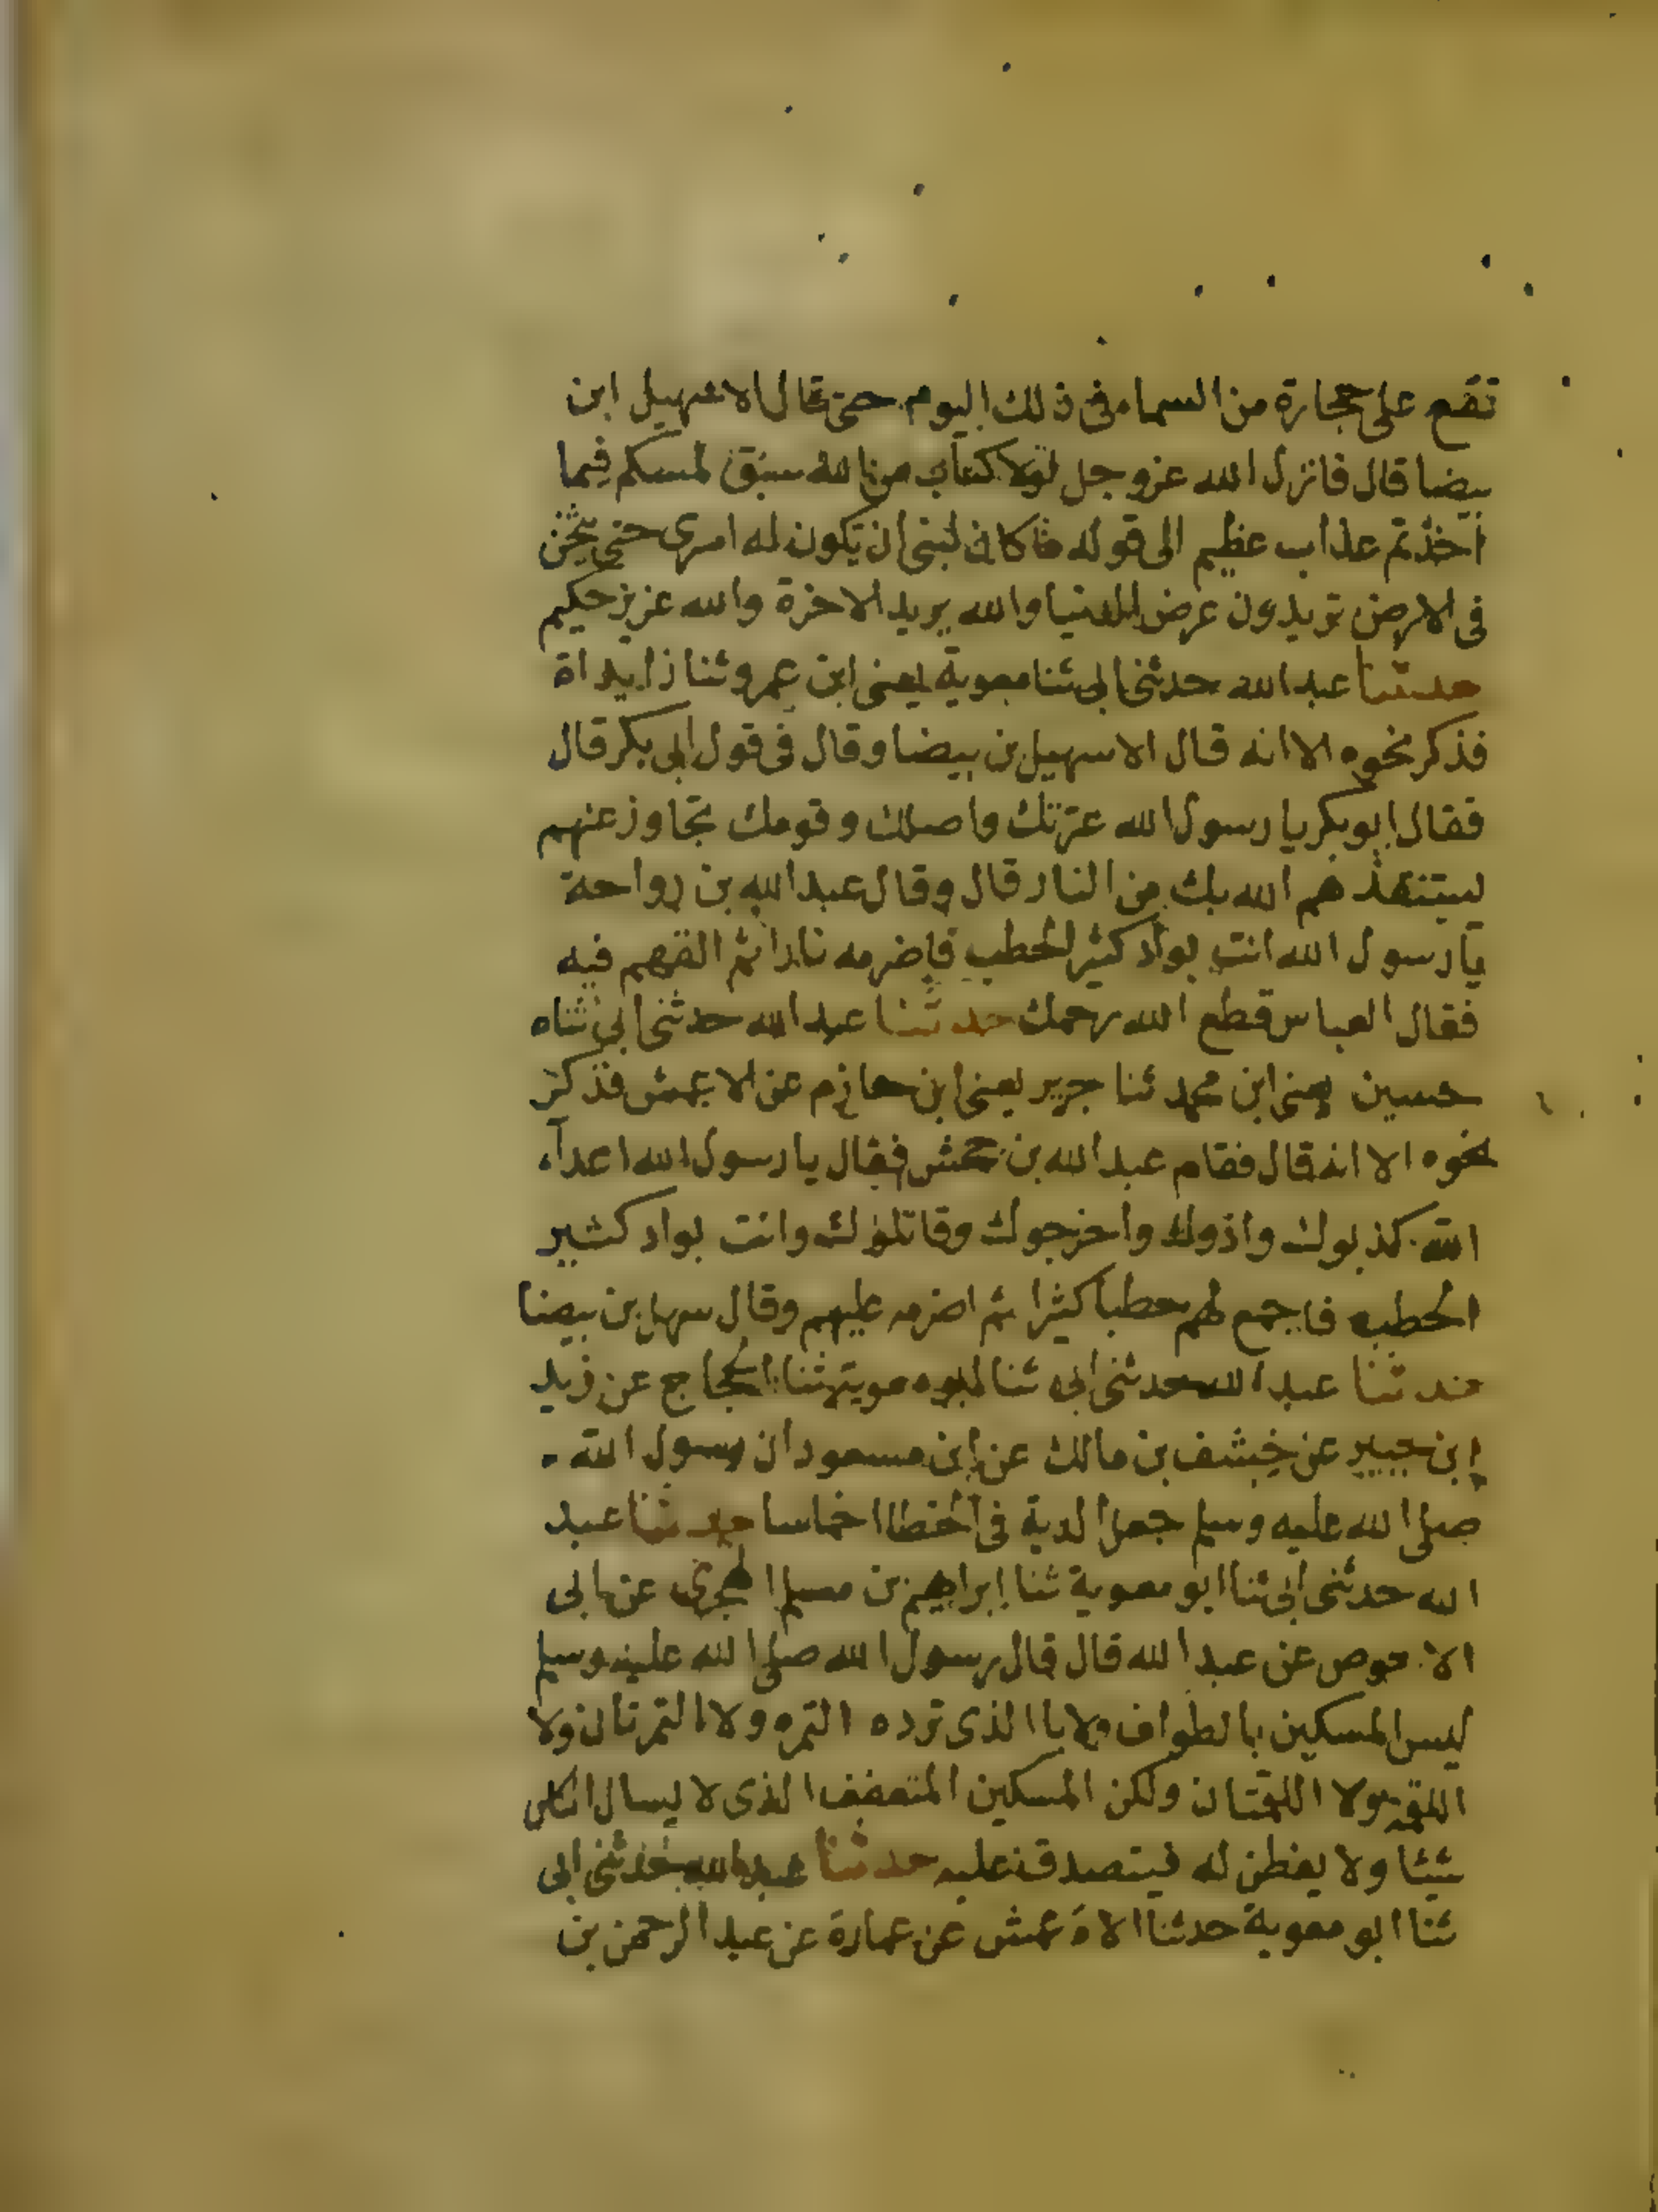 تقع على حجارة من السماء فى ذلك اليوم حتى قال الا سهيل ابن
بيضا قال فانزل الله عز وجل لولا كتاب من الله سبق لمسكم فيما
اخذتم عذاب عظيم الى قوله ما كان لنبى ان تكون له اسرى حتى يثخن
فى الارض تريدون عرض الدنيا والله يريد الاخرة والله عزيز حكيم
حدثنا عبد الله حدثنى ابى ثنا معوية يعنى ابن عمرو ثنا زايداة
فذكر نحوه الا انه قال الا سهيل بن بيضا وقال فى قول ابى بكر قال
فقال ابو بكر يا رسول الله عترتك واصلك وقومك تجاوز عنهم
ليستنقذهم الله بك من النار قال وقال عبد الله بن رواحة
يا رسول الله انت بواد كثير الحطب فاضرمه نارا ثم القهم فيه
فقال العباس قطع الله رحمك حدثنا عبد الله حدثنى ابى ثناه
حسين يعنى ابن محمد ثنا جرير يعنى ابن حازم عن الاعمش فذكر
نحوه الا انه قال فقام عبد الله بن جحش فقال يا رسول الله اعداء
الله كذبوك واذوك واخرجوك وقاتلوك وانت بواد كثير
الحطب فاجمع لهم حطبا كثيرا ثم اضرمه عليهم وقال سهل بن بيضا
حدثنا عبد الله حدثنى ابى ثنا ابو معوية ثنا الحجاج عن زيد
ابن جبير عن خشف بن مالك عن ابن مسعود ان رسول الله
صلى الله عليه وسلم جعل الدية فى الخطا اخماسا حدثنا عبد
الله حدثنى ابى ثنا ابو معوية ثنا ابراهيم بن مسلم الهجرى عن ابى
الاحوص عن عبد الله قال قال رسول الله صلى الله عليه وسلم
ليس المسكين بالطواف ولا باالذى ترده التمره ولا التمرتان ولا
اللقمه ولا اللقمتان ولكن المسكين المتعفف الذى لا يسال الناس
شيئا ولا يفطن له فيتصدق عليه حدثنا عبد الله حدثنى ابى
ثنا ابو معوية حدثنا الاعمش عن عمارة عن عبد الرحمن بن